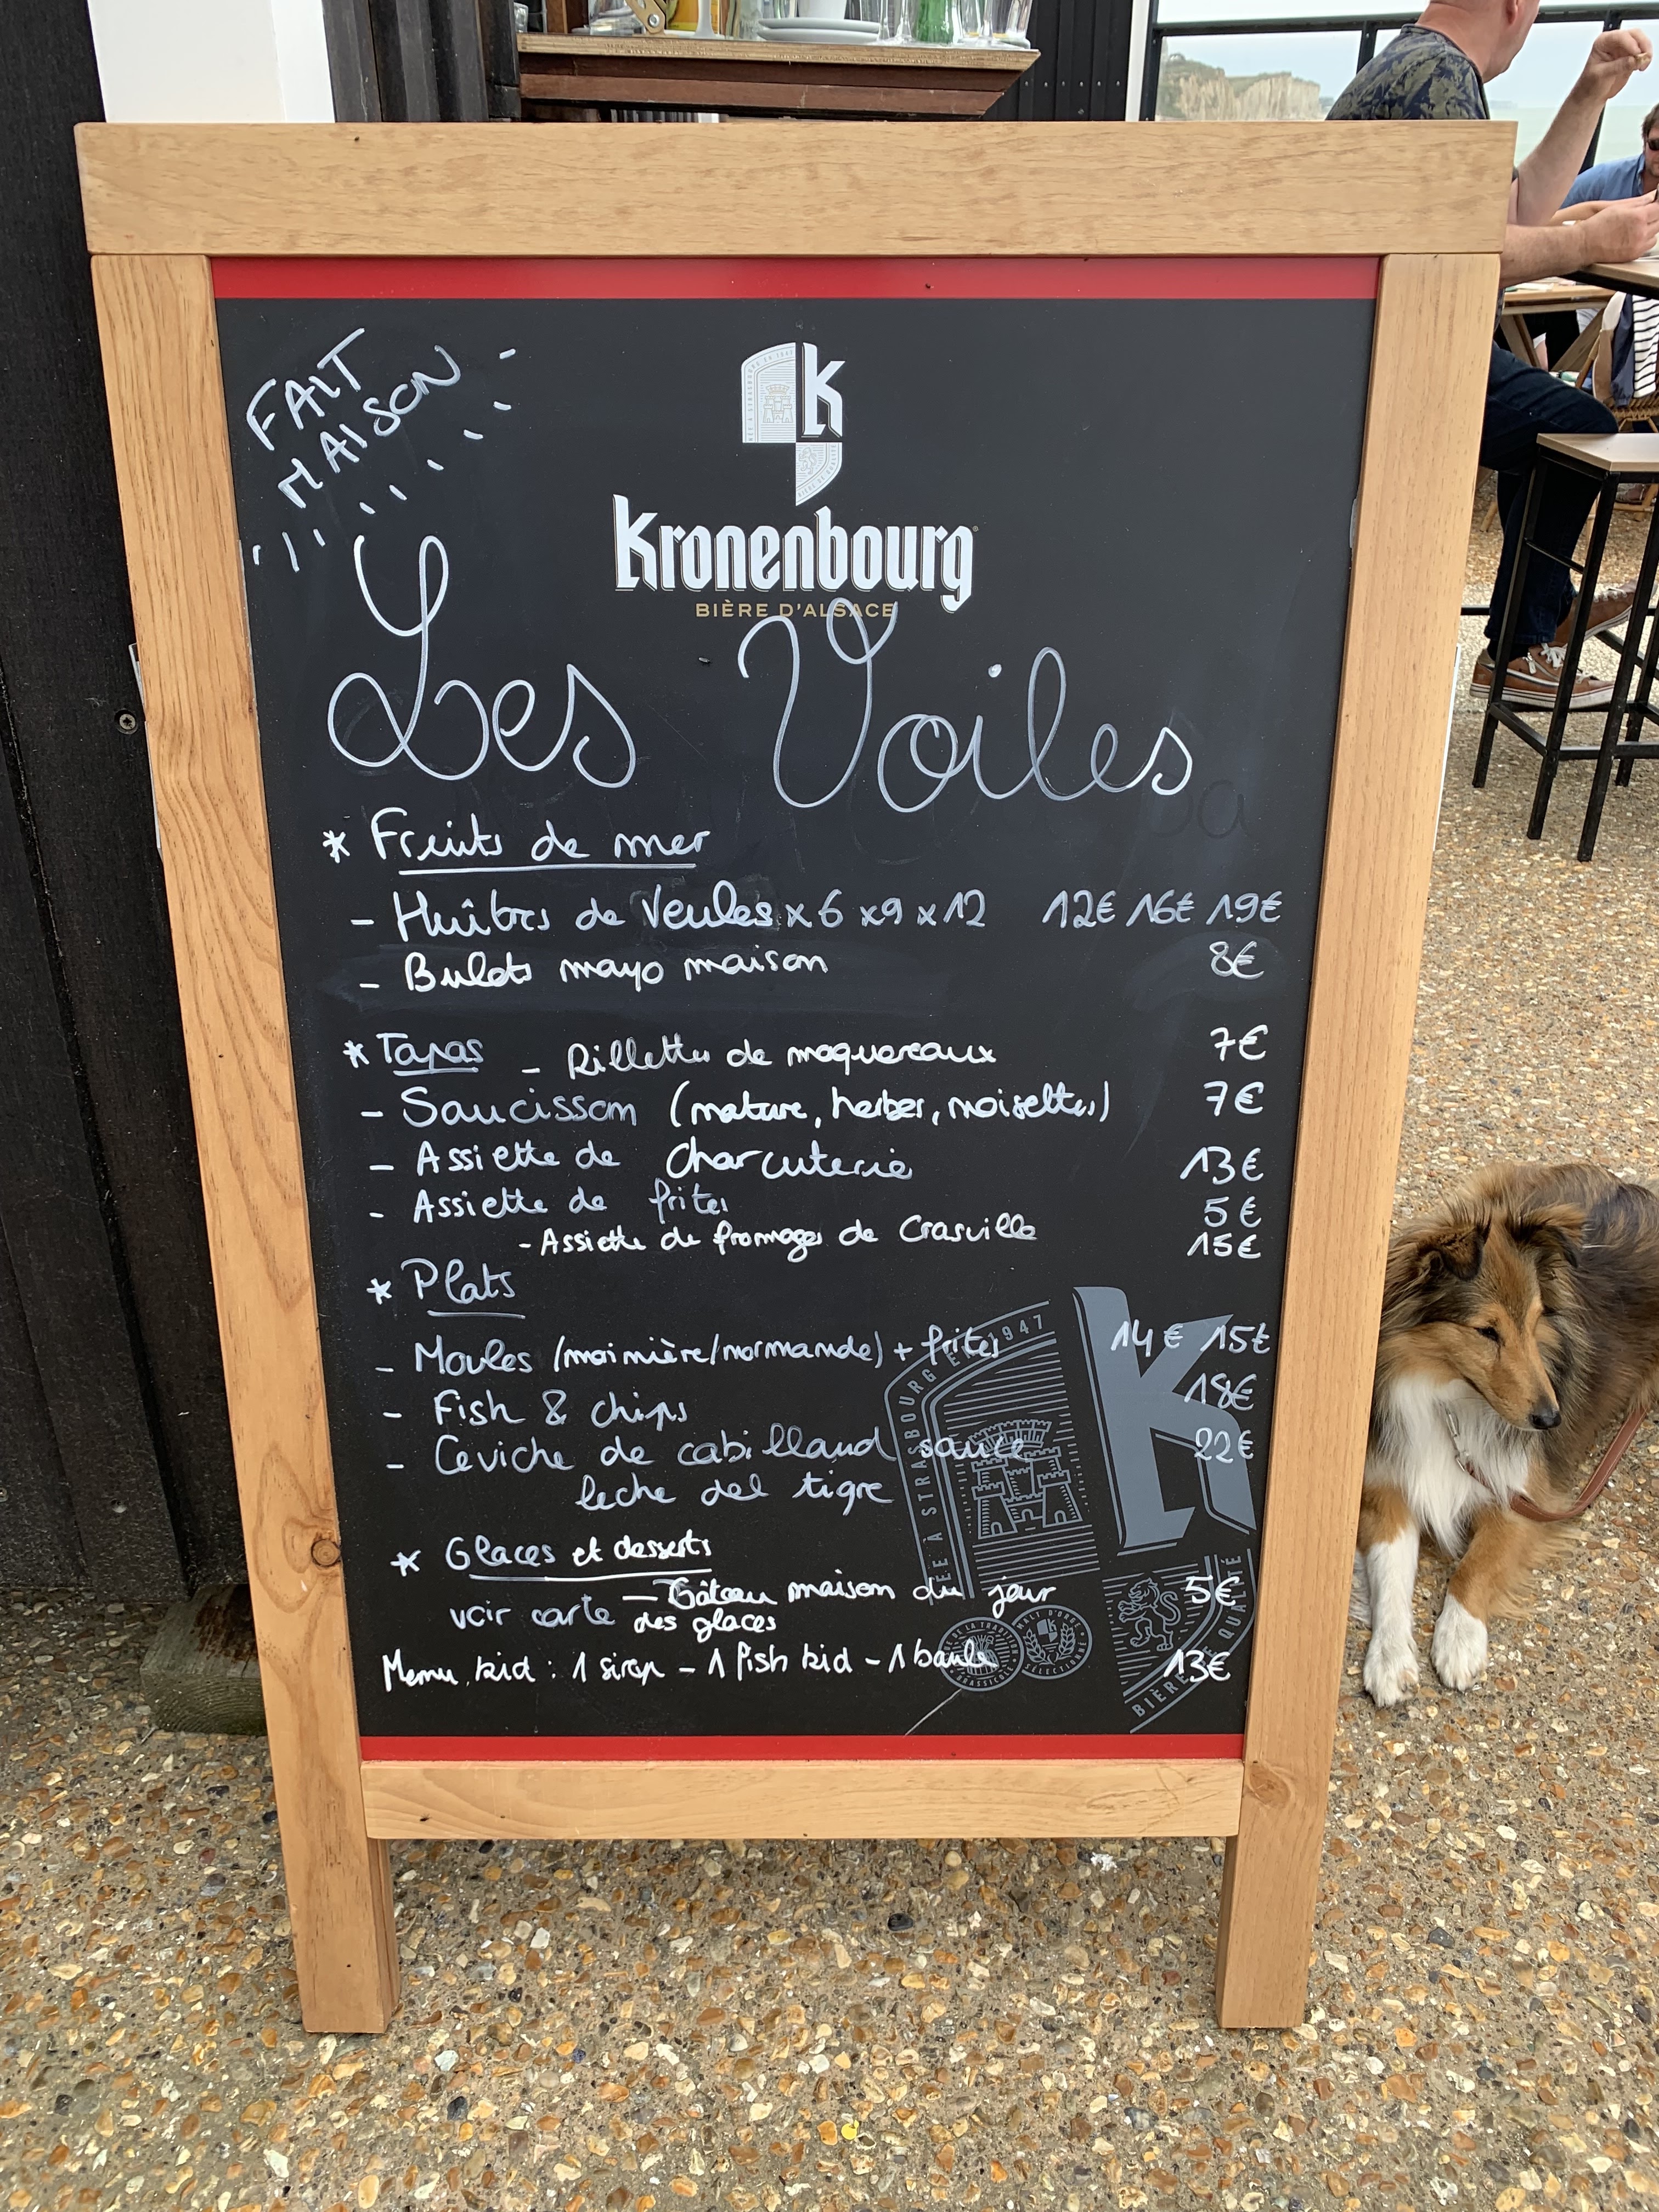 FAIT
MAISON
K
Kronenbourg
BIÈRE D'ALSACE
Les Voiles
* Fruits de mer
- Huîtres de Veules x 6 x9 x 12 12€ 16€ 19€
- Bulots mayo maison 8€
* Tapas - Rillettes de maquereaux 7€
- Saucisson (nature, herbes, noisettes) 7€
- Assiette de charcuterie 13€
- Assiette de frites 5€
- Assiette de fromages de Crasville 15€
* Plats
- Moules (marinière/normande) + frites 14€ 15€
- Fish & chips 18€
- Ceviche de cabillaud sauce 22€
leche del tigre
* Glaces et desserts
- Gâteau maison du jour 5€
voir carte des glaces
Menu kid : 1 sirop - 1 fish kid - 1 boule 13€
À STRASBOURG EN 1947
K
BIÈRE DE QUALITÉ
MALT D'ORGE
SÉLECTIONNÉ